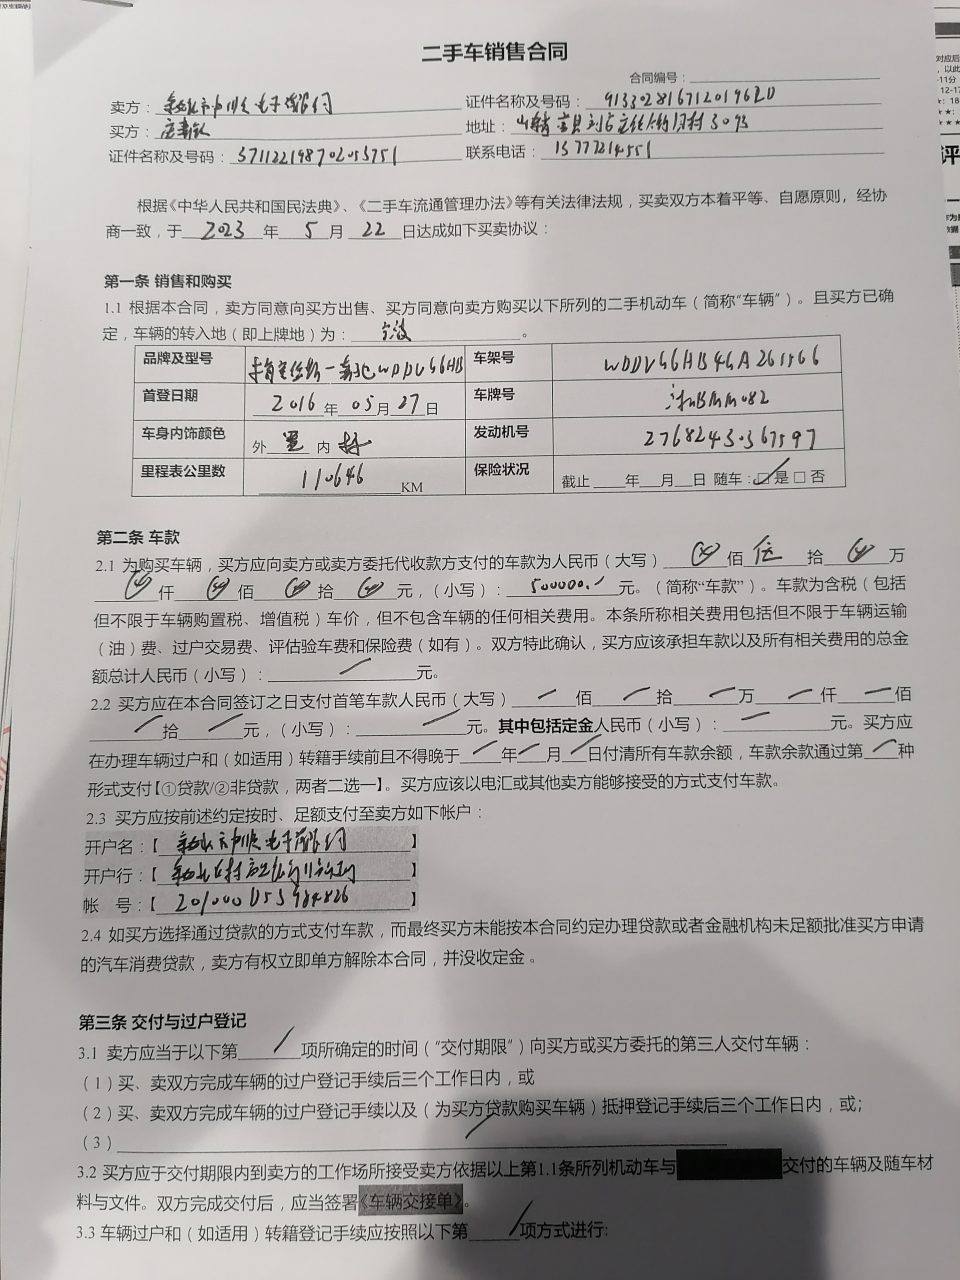 二手车销售合同
合同编号：
卖方： 证件名称及号码：91330281671201962D
买方： 地址：
证件名称及号码：371122198702053751 联系电话：13777214551
根据《中华人民共和国民法典》、《二手车流通管理办法》等有关法律法规，买卖双方本着平等、自愿原则，经协
商一致，于 2023 年 5 月 22 日达成如下买卖协议：
第一条 销售和购买
1.1 根据本合同，卖方同意向买方出售、买方同意向卖方购买以下所列的二手机动车（简称“车辆”）。且买方已确
定，车辆的转入地（即上牌地）为：宁波。
品牌及型号 WDDVG6HB 车架号 WDDVG6HB4GA261566
首登日期 2016年05月27日 车牌号
车身内饰颜色 外 内 发动机号 27682430367597
里程表公里数 110646 KM 保险状况 截止 年 月 日 随车：□是 □否
第二条 车款
2.1 为购买车辆，买方应向卖方或卖方委托代收款方支付的车款为人民币（大写） 佰 伍 拾 万
仟 佰 拾 元，（小写）： 元。（简称“车款”）。车款为含税（包括
但不限于车辆购置税、增值税）车价，但不包含车辆的任何相关费用。本条所称相关费用包括但不限于车辆运输
（油）费、过户交易费、评估验车费和保险费（如有）。双方特此确认，买方应该承担车款以及所有相关费用的总金
额总计人民币（小写）： / 元。
2.2 买方应在本合同签订之日支付首笔车款人民币（大写） / 佰 / 拾 / 万 / 仟 / 佰
/ 拾 / 元，（小写）： / 元。其中包括定金人民币（小写）： / 元。买方应
在办理车辆过户和（如适用）转籍手续前且不得晚于 / 年 / 月 / 日付清所有车款余额，车款余款通过第 / 种
形式支付【①贷款/②非贷款，两者二选一】。买方应该以电汇或其他卖方能够接受的方式支付车款。
2.3 买方应按前述约定按时、足额支付至卖方如下帐户：
开户名：【 】
开户行：【 】
帐 号：【 】
2.4 如买方选择通过贷款的方式支付车款，而最终买方未能按本合同约定办理贷款或者金融机构未足额批准买方申请
的汽车消费贷款，卖方有权立即单方解除本合同，并没收定金。
第三条 交付与过户登记
3.1 卖方应当于以下第 / 项所确定的时间（“交付期限”）向买方或买方委托的第三人交付车辆：
（1）买、卖双方完成车辆的过户登记手续后三个工作日内，或
（2）买、卖双方完成车辆的过户登记手续以及（为买方贷款购买车辆）抵押登记手续后三个工作日内，或；
（3） /
3.2 买方应于交付期限内到卖方的工作场所接受卖方依据以上第1.1条所列机动车与 交付的车辆及随车材
料与文件。双方完成交付后，应当签署《车辆交接单》。
3.3 车辆过户和（如适用）转籍登记手续应按照以下第 / 项方式进行：